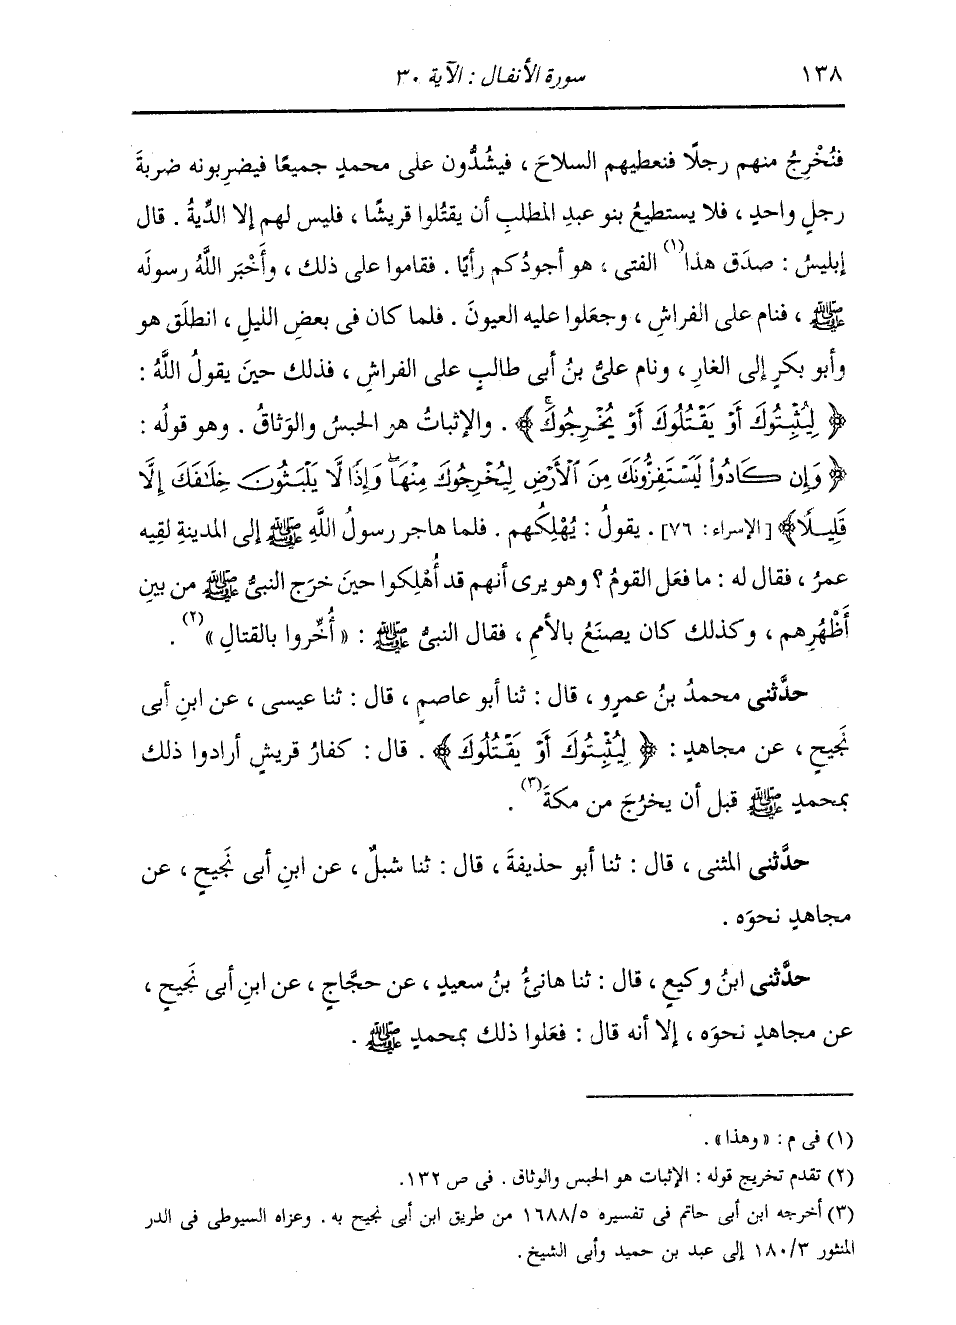 ١٣٨ سورة الأنفال : الآية ٣٠
فنُخْرِجُ منهم رجلًا فنعطيهم السلاحَ ، فيشُدُّون على محمدٍ جميعًا فيضرِبونه ضربةَ
رجلٍ واحدٍ ، فلا يستطيعُ بنو عبدِ المطلبِ أن يقتُلوا قريشًا ، فليس لهم إلا الدِّيةُ . قال
إبليسُ : صدَق هذا(١) الفتى ، هو أجودُكم رأيًا . فقاموا على ذلك ، وأَخْبَر اللَّهُ رسولَه
ﷺ ، فنام على الفراشِ ، وجعَلوا عليه العيونَ . فلما كان فى بعضِ الليلِ ، انطلَق هو
وأبو بكرٍ إلى الغارِ ، ونام علىُّ بنُ أبى طالبٍ على الفراشِ ، فذلك حينَ يقولُ اللَّهُ :
﴿ لِيُثْبِتُوكَ أَوْ يَقْتُلُوكَ أَوْ يُخْرِجُوكَ ﴾ . والإثباتُ هو الحبسُ والوَثاقُ . وهو قولُه :
﴿ وَإِن كَادُوا لَيَسْتَفِزُّونَكَ مِنَ ٱلْأَرْضِ لِيُخْرِجُوكَ مِنْهَا وَإِذًا لَّا يَلْبَثُونَ خِلَٰفَكَ إِلَّا
قَلِيلًا﴾ [الإسراء: ٧٦] . يقولُ : يُهْلِكُهم . فلما هاجر رسولُ اللَّهِ ﷺ إلى المدينةِ لقِيه
عمرُ ، فقال له : ما فعَل القومُ ؟ وهو يرى أنهم قد أُهْلِكوا حينَ خرَج النبىُّ ﷺ من بينِ
أَظْهُرِهم ، وكذلك كان يصنَعُ بالأممِ ، فقال النبىُّ ﷺ : « أُخِّروا بالقتالِ »(٢) .
حدَّثنى محمدُ بنُ عمرٍو ، قال : ثنا أبو عاصمٍ ، قال : ثنا عيسى ، عن ابنِ أبى
نَجيحٍ ، عن مجاهدٍ : ﴿ لِيُثْبِتُوكَ أَوْ يَقْتُلُوكَ ﴾ . قال : كفارُ قريشٍ أرادوا ذلك
بمحمدٍ ﷺ قبل أن يخرُجَ من مكةَ(٣) .
حدَّثنى المثنى ، قال : ثنا أبو حذيفةَ ، قال : ثنا شبلٌ ، عن ابنِ أبى نَجيحٍ ، عن
مجاهدٍ نحوَه .
حدَّثنى ابنُ وكيعٍ ، قال : ثنا هانئُ بنُ سعيدٍ ، عن حجَّاجٍ ، عن ابنِ أبى نَجيحٍ ،
عن مجاهدٍ نحوَه ، إلا أنه قال : فعَلوا ذلك بمحمدٍ ﷺ .
(١) فى م : « وهذا » .
(٢) تقدم تخريج قوله : الإثبات هو الحبس والوثاق . فى ص ١٣٢.
(٣) أخرجه ابن أبى حاتم فى تفسيره ١٦٨٨/٥ من طريق ابن أبى نجيح به . وعزاه السيوطى فى الدر
المنثور ١٨٠/٣ إلى عبد بن حميد وأبى الشيخ .